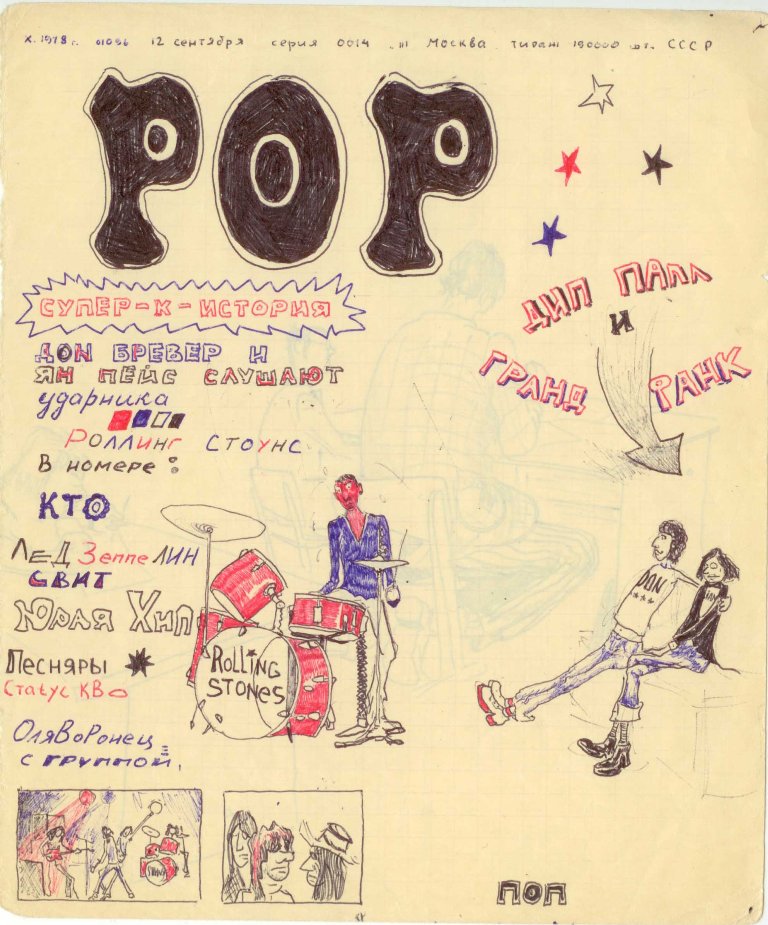 X. 1978 г. 01096 12 сентября серия 0014 .III Москва тираж 190000 шт. СССР
POP
СУПЕР-К-ИСТОРИЯ
ДИП ПАПЛ
И
ГРАНД ФАНК
ДОН БРЕВЕР И
ЯН ПЕЙС СЛУШАЮТ
ударника
Роллинг стоунс
В номере:
КТО
Лед Зеппелин
СВИТ
Юрая Хип
Песняры
Статус КВо
Оля Воронец
с группой.
ROLLING
STONES
DON
ПОП